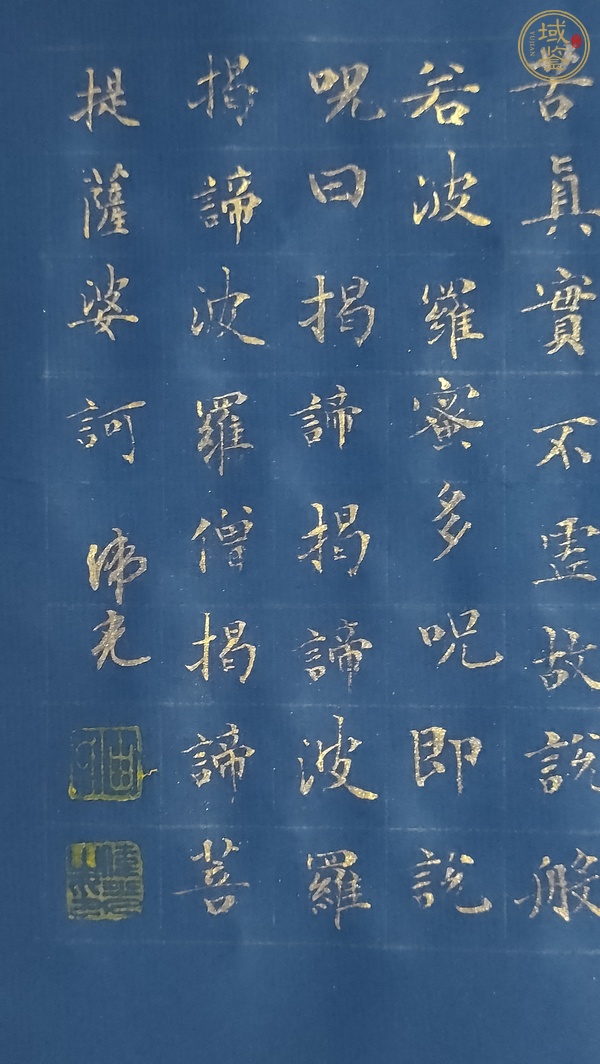 苦眞實不虛故說般
若波羅蜜多呪即說
呪曰揭諦揭諦波羅
揭諦波羅僧揭諦菩
提薩婆訶
域鑒